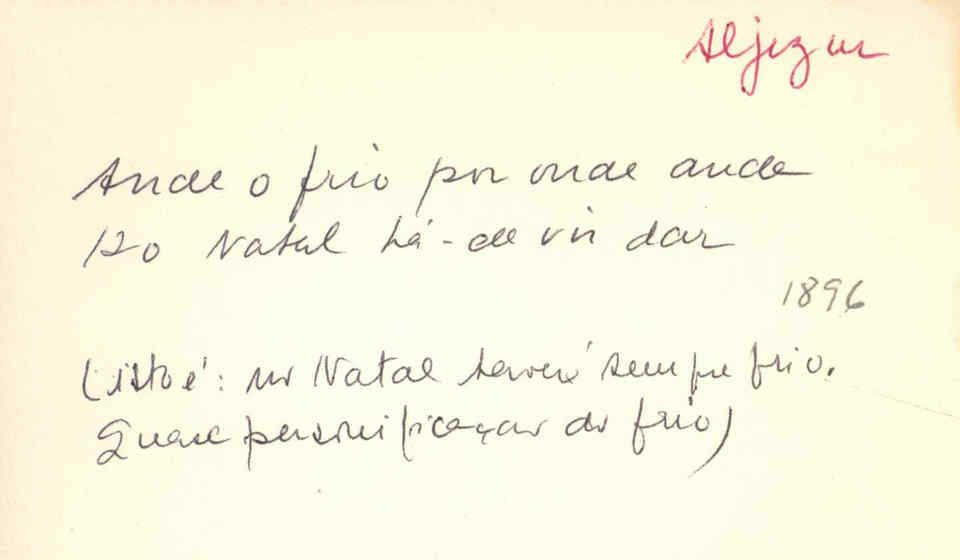 Aljezur
Ande o frio por onde ande
Ao Natal há-de vir dar
1896
(isto é: no Natal haverá sempre frio.
Quase personificação do frio)